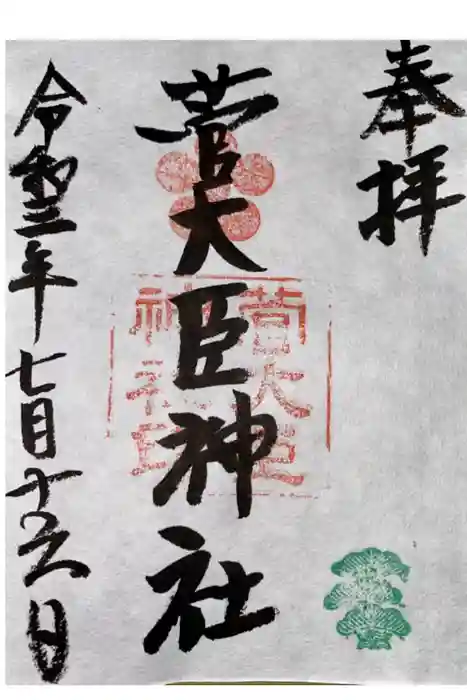 奉拝
菅大臣神社
菅大臣
神社印
令和三年七月十六日